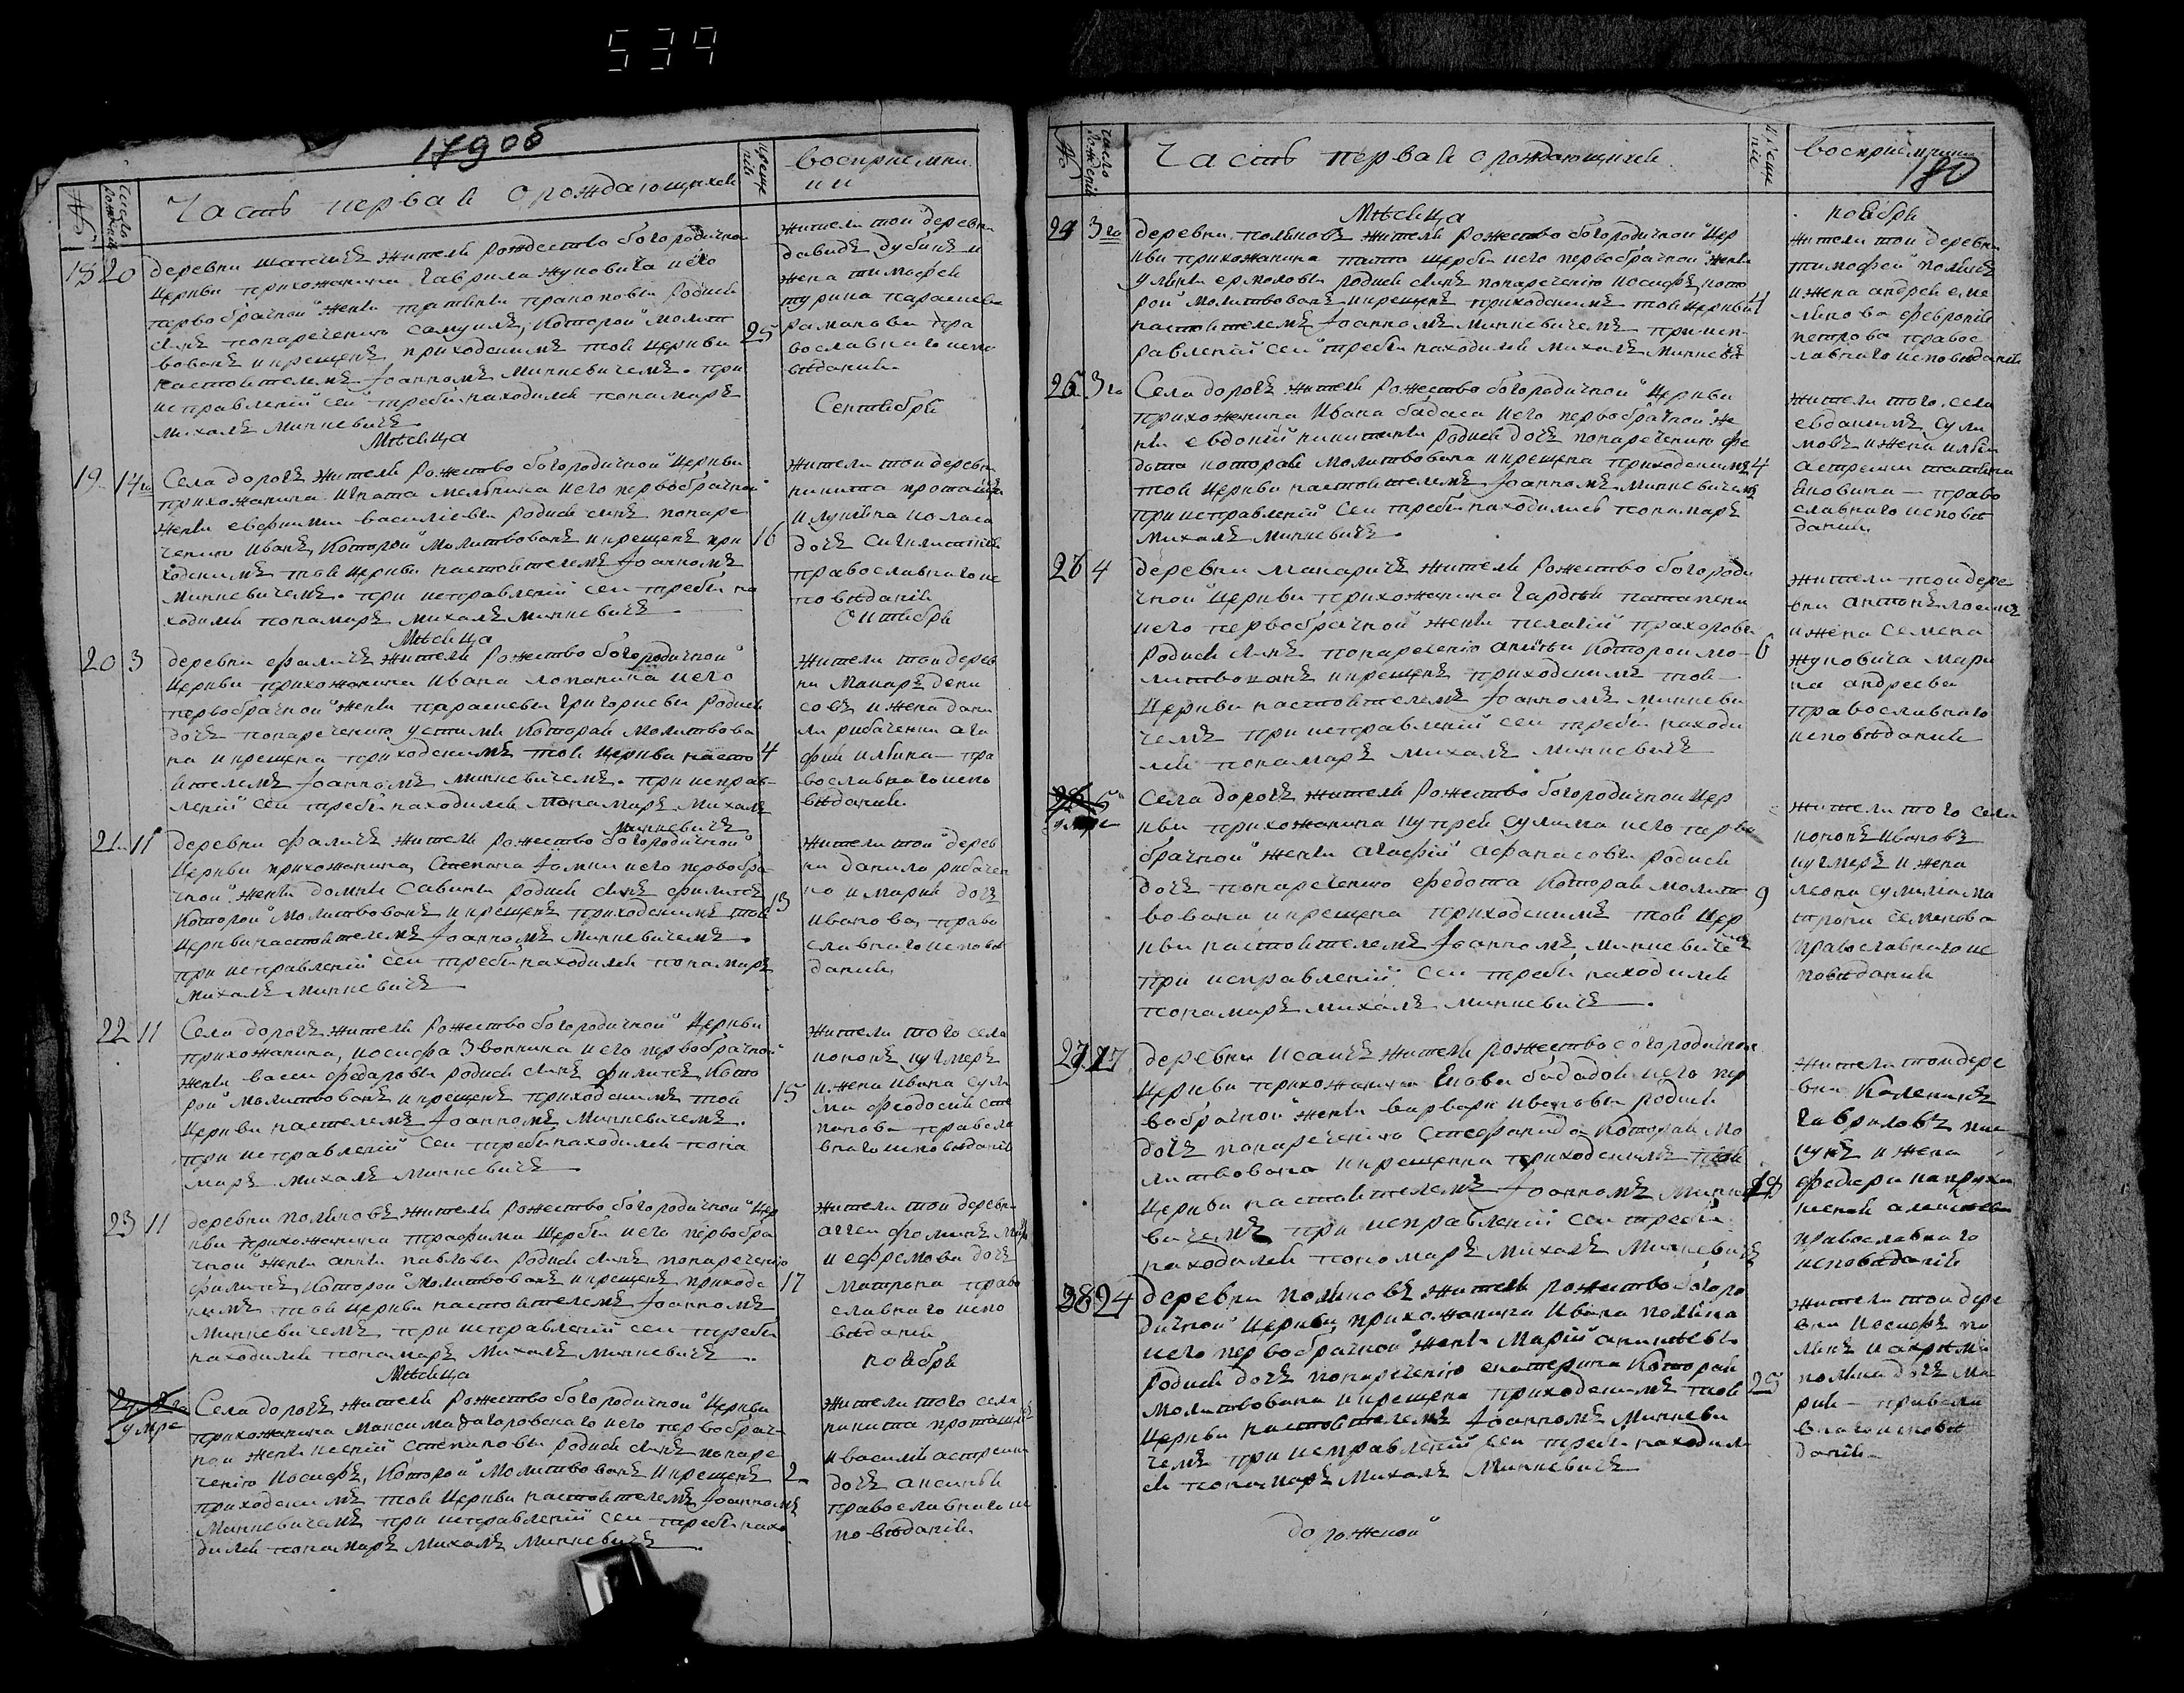 539
1790б
№
число рождения
Часть первая о рождающихся
креще ния
восприемни
ки
18 20
деревни шатичъ жители Рождество богородичной
Церкви прихожанина Гаврила Жуковича и его
первобрачной жены татияны прокоповы родися
сынъ понаречению Самуилъ, которой молит
вованъ и крещенъ приходскимъ тоя Церкви
настоятелемъ Иоанномъ Минкевичемъ. при
исправлении сей требы находился понамаръ
михалъ минкевичъ
25
жители той деревни
давидъ дубикъ и
жена тимофея
параскева
романова пра
вославнаго испо
ведания
Мѣсяца
Сентября
19 14го
Села дорогъ жители рожество богородичной Церкви
прихожанина Игната Мелника и его первобрачной
жены евфимии василиевы родися сынъ понаре
чению Иванъ, которой молитвованъ и крещенъ при
ходскимъ тоя Церкви настоятелемъ Иоанномъ
Минкевичемъ. при исправлении сей требы на
ходился понамаръ михалъ минкевичъ
16
жители той деревни
никита
дочь
православнаго ис
поведания
Мѣсяца
Октября
20 3
деревни фаличъ жители рожество богородичной
Церкви прихожанина Ивана лопанина и его
первобрачной жены параскевы григориевы родися
дочь понаречению устиния которая молитвова
на и крещена приходскимъ тоя Церкви насто
ятелемъ Иоанномъ минкевичемъ. при исправ
лении сей требы находился понамаръ михалъ
минкевичъ
4
жители той дерев
ни Макаръ дени
совъ и жена дани
ла рибаченки ага
фия илина пра
вославнаго испо
ведания
21 11
деревни фаличъ жители рожество богородичной
Церкви прихожанина, Степана фомки и его первобра
чной жены домны савины родися сынъ филипъ
которой молитвованъ и крещенъ приходскимъ тоя
Церкви настоятелемъ Иоанномъ Минкевичемъ.
при исправлении сей требы находился понамаръ
михалъ минкевичъ
13
жители той дерев
ни данило рибачен
ко и мария дочь
иванова, право
славнаго испове
дания
22 11
Села дорогъ жители рожество богородичной Церкви
прихожанина, иосифа Звонника и его первобрачной
жены васы федаровы родися сынъ филипъ, кото
рой молитвованъ и крещенъ приходскимъ тоя
Церкви настоятелемъ Иоанномъ Минкевичемъ.
при исправлении сей требы находился пона
маръ михалъ минкевичъ
15
жители того села
кононъ кучмеръ
и жена ивана сули
мы феодосия сте
панова правосла
внаго исповедания
23 11
деревни поликовъ жители рожество богородичной Цер
кви прихожанина трафима Щербы и его первобра
чной жены анны павловы родися сынъ понаречению
филипъ, которой молитвованъ и крещенъ приходс
кимъ тоя Церкви настоятелемъ Иоанномъ
Минкевичемъ, при исправлении сей требы
находился понамаръ михалъ минкевичъ
17
жители той деревни
и ефремова дочь
матрона право
славнаго испо
ведания
Мѣсяца
ноября
умре
Села дорогъ жители рожество богородичной Церкви
прихожанина максима и его первобрач
ной жены ксении степановы родися сынъ понаре
чению иосифъ, которой молитвованъ и крещенъ
приходскимъ тоя Церкви настоятелемъ Иоанномъ
Минкевичемъ при исправлении сей требы нахо
дился понамаръ михалъ минкевичъ
2
жители того села
никита
и василия астрейки
дочь аксиния
православнаго ис
поведания
№
число рождения
Часть первая о рождающихся
креще ние
восприемники
180
Мѣсяца
ноября
24 3го
деревни поликовъ жители рожество богородичной Цер
кви прихожанина тита щербы и его первобрачной жены
улияны ермоловы родися сынъ понаречению иосифъ, кото
рой молитвованъ и крещенъ приходскимъ тоя Церкви
настоятелемъ Иоанномъ минкевичемъ при исп
равлении сей требы находился михалъ минкевичъ
4
жители той деревни
тимофей поликъ
и жена андрея еме
лянова феврония
петрова правос
лавнаго исповедания
25 3го
Села дорогъ жители рожество богородичной Церкви
прихожанина Ивана бадаса и его первобрачной же
ны евдокии никитины родися дочь понаречению фе
дота которая молитвована и крещена приходскимъ
тоя Церкви настоятелемъ Иоанномъ минкевичемъ
при исправлении сей требы находилися понамаръ
михалъ минкевичъ.
4
жители того села
евдакимъ сули
мовъ и жена илии
астрейки татияна
яковина право
славнаго испове
дания
26 4
деревни макаричъ жители рожество богороди
чной Церкви прихожанина гардея паталени
и его первобрачной жены пелагии прохоровы
родися сынъ понаречению которой мо
литвованъ и крещенъ приходскимъ тоя
Церкви настоятелемъ Иоанномъ минкеви
чемъ при исправлении сей требы находи
лся понамаръ михалъ минкевичъ
6
жители той дере
вни антонъ
и жена семена
жуковича мари
на андреева
православнаго
исповедания
умре
Села дорогъ жители рожество богородичной Цер
кви прихожанина сулима и его перво
брачной жены агафии афанасовы родися
дочь понаречению федота которая молит
вована и крещена приходскимъ тоя Цер
кви настоятелемъ Иоанномъ, минкевичемъ
при исправлении сей требы находился
понамаръ михалъ минкевичъ.
9
жители того села
кононъ ивановъ
кучмеръ и жена
леона сулимы ма
трона семенова
православнаго ис
поведания
27 17
деревни исаичъ жители рожество богородичной
Церкви прихожанина Якова бададоя и его пер
вобрачной жены варвары ивановы родися
дочь понаречению Стефанида которая мо
литвована и крещенна приходскимъ тоя
Церкви настоятелемъ Иоанномъ минке
вичемъ при исправлении сей требы
находился пономаръ михалъ минкевичъ
жители той дере
вни Каленикъ
гавриловъ
и жена
федора
алексеева
православнаго
исповедания
28 24
деревни поликовъ жители рожество богоро
дичной Церкви, прихожанина ивана полика
и его первобрачной жены марии аникеевы
родися дочь понаречению екатерина которая
молитвована и крещена приходскимъ тоя
Церкви настоятелемъ Иоанномъ Минкеви
чемъ при исправлении сей требы находил
ся понамаръ михалъ минкевичъ
25
жители той дере
вни иосифъ по
ликъ и
полика дочь ма
рия правосла
внаго испове
дания
дорожской